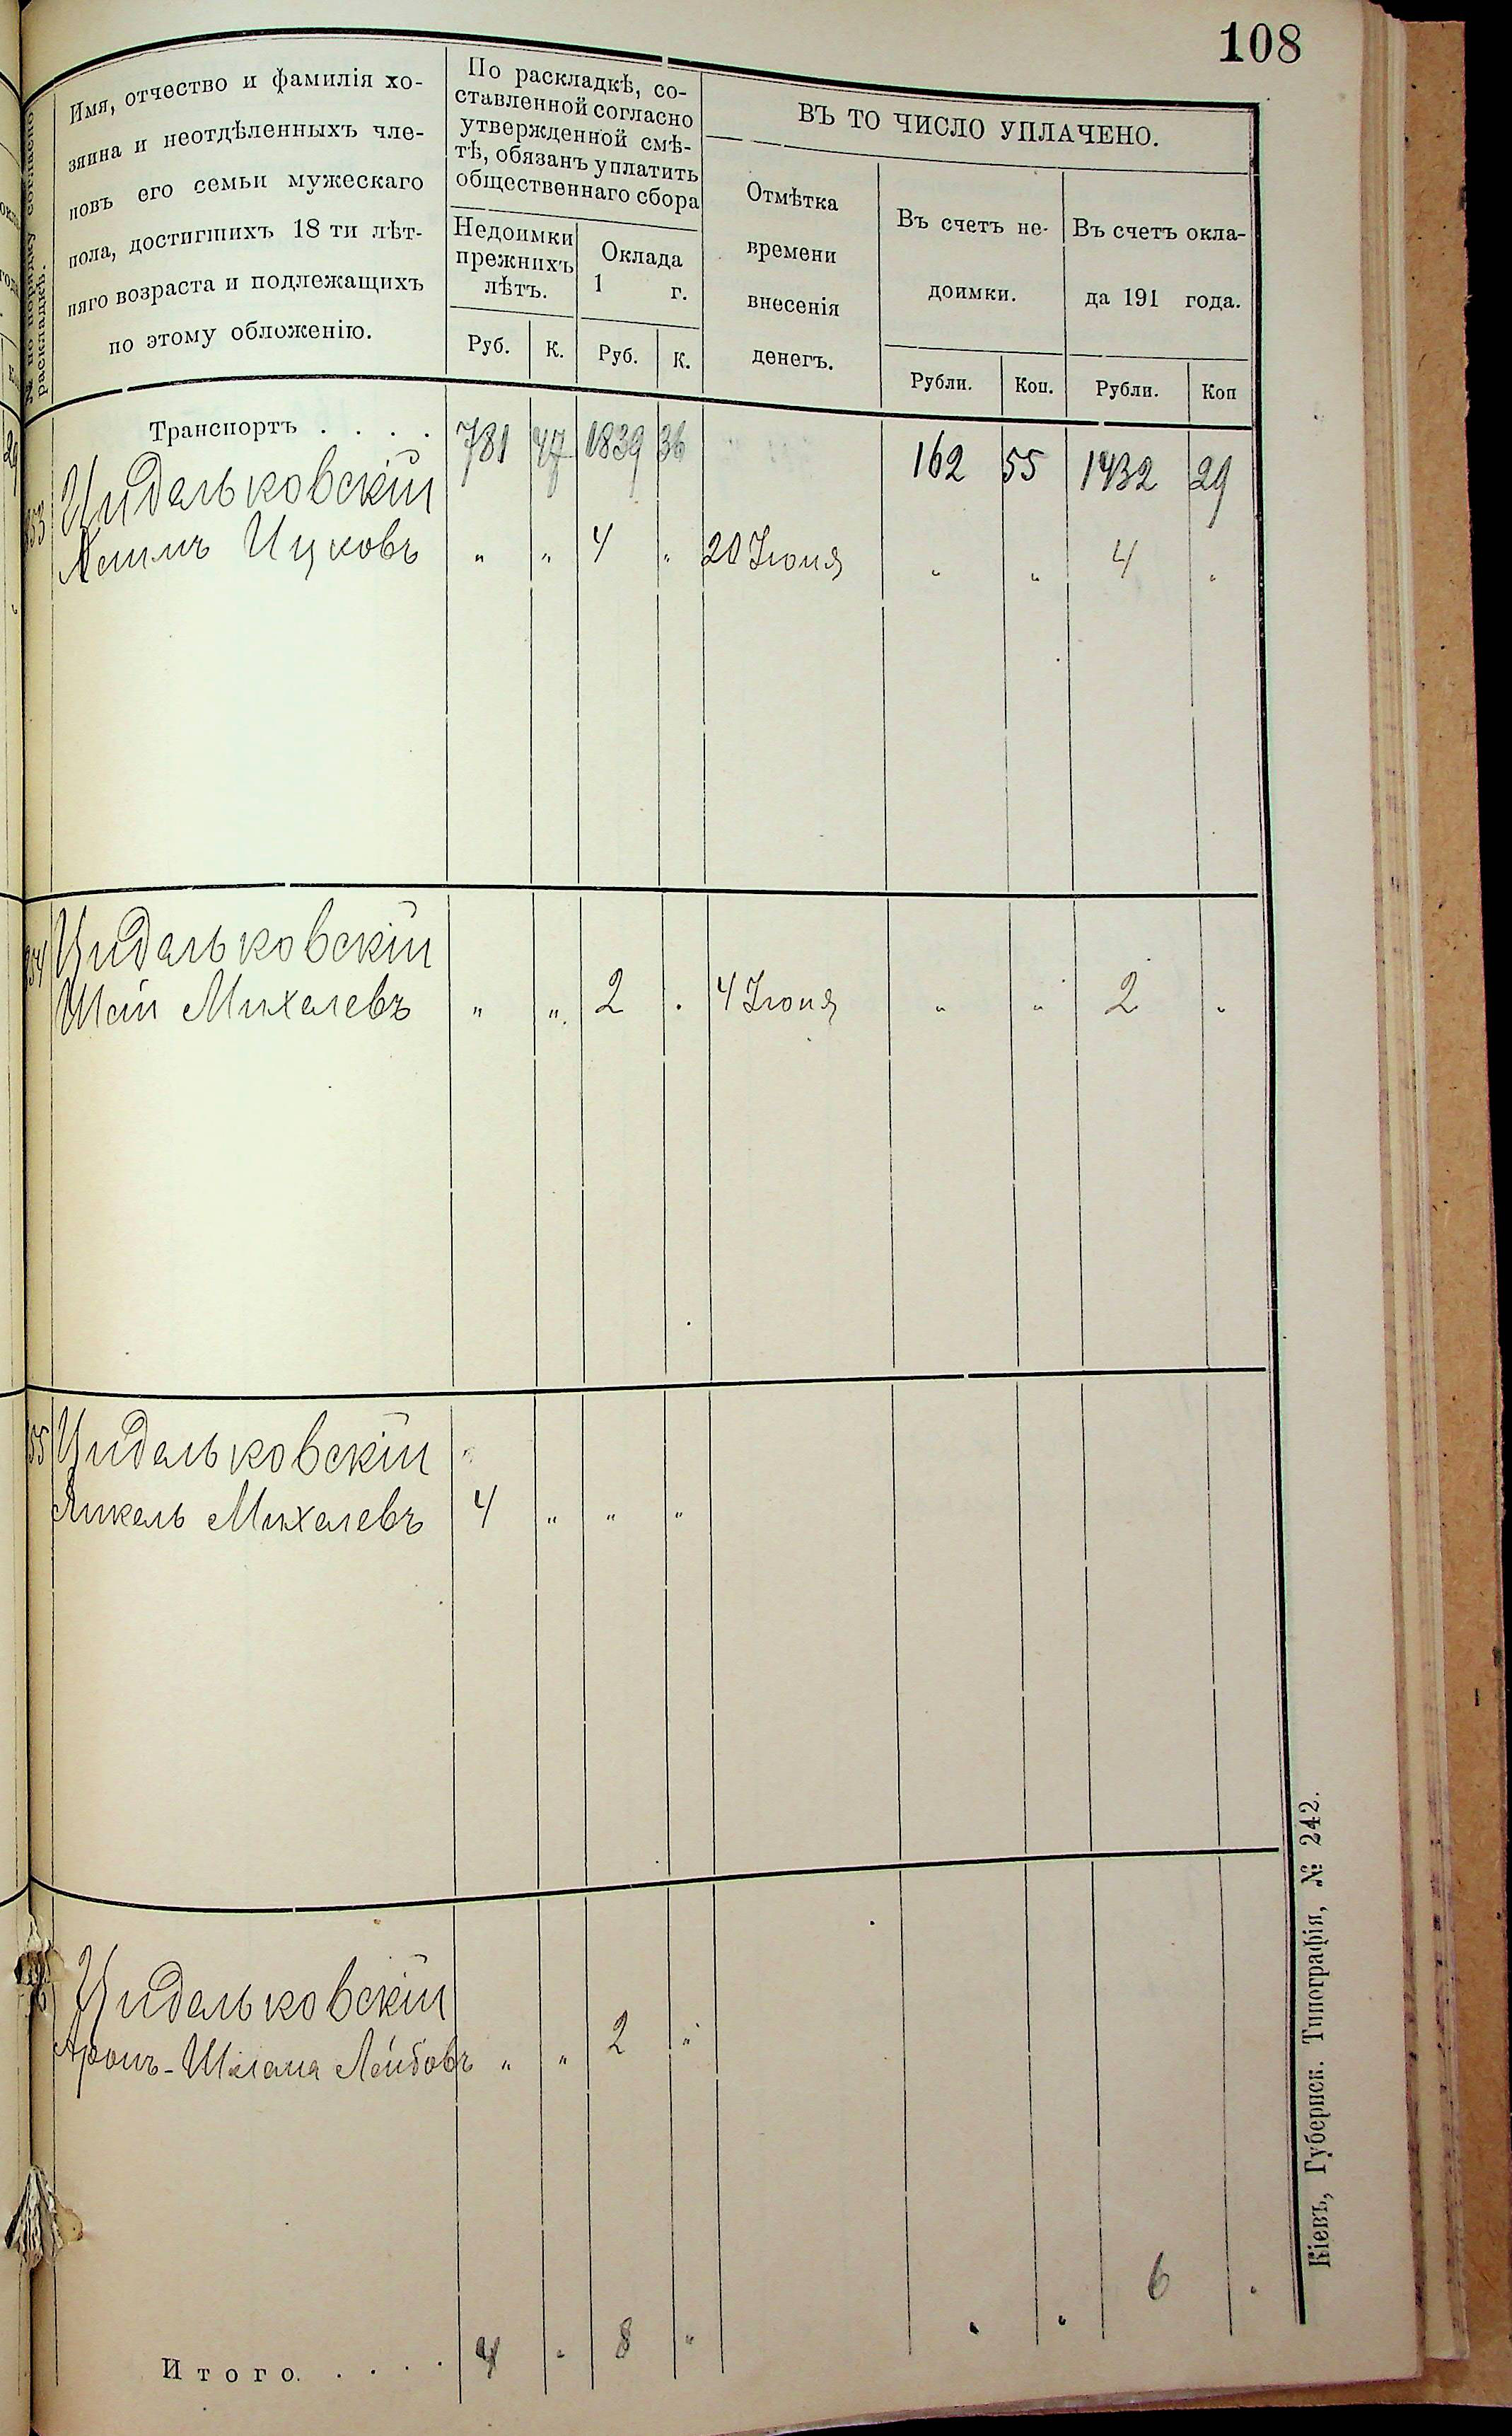 108
№ по порядку согласно
раскладкѣ.
Имя, отчество и фамилія хо-
зяина и неотдѣленныхъ чле-
новъ его семьи мужескаго
пола, достигшихъ 18 ти лѣт-
няго возраста и подлежащихъ
по этому обложенію.
По раскладкѣ, со-
ставленной согласно
утвержденной смѣ-
тѣ, обязанъ уплатить
общественнаго сбора
Недоимки
прежнихъ
лѣтъ.
Оклада
1 г.
Руб. К. Руб. К.
ВЪ ТО ЧИСЛО УПЛАЧЕНО.
Отмѣтка
времени
внесенія
денегъ.
Въ счетъ не-
доимки.
Въ счетъ окла-
да 191 года.
Рубли. Коп. Рубли. Коп
Транспортъ . . . . 781 47 1839 36 162 55 1432 29
Цидельковскій
Хаимъ Ицковъ " " 4 " 20 Іюня " " 4 "
Цидельковскій
Шая Михелевъ " " 2 " 4 Іюня " " 2 "
Цидельковскій
Янкель Михелевъ 4 " " "
Цидельковскій
Аронъ-Шлема Лейбовъ " " 2 "
Итого. . . . . 4 " 8 " " " 6 "
Кіевъ, Губернск. Типографія, № 242.